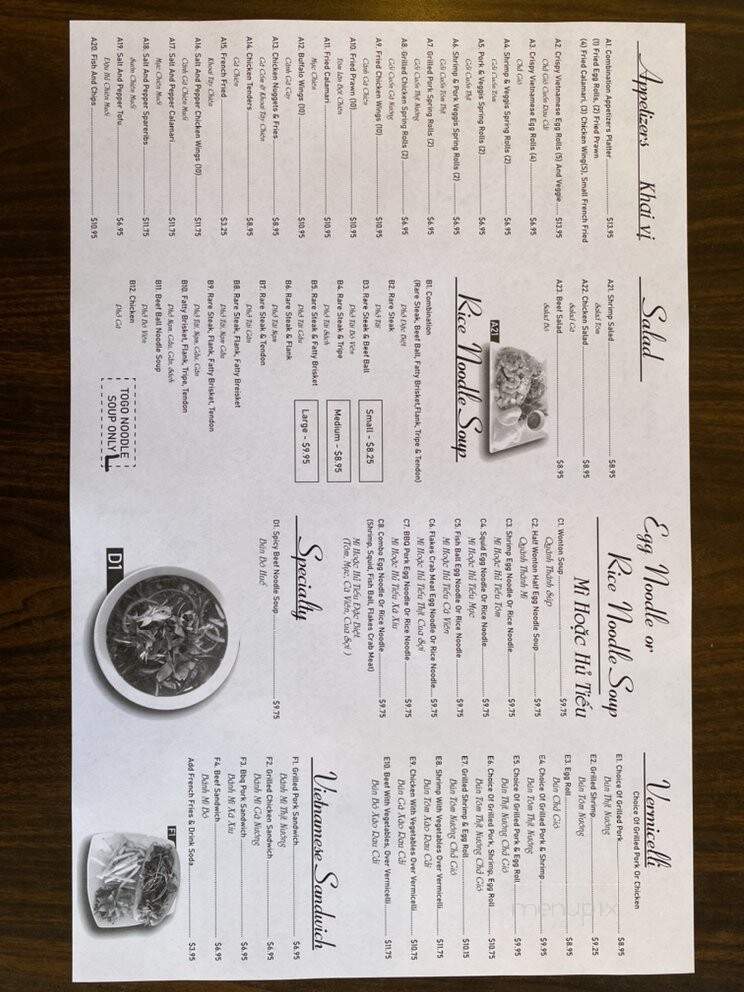 Appetizers Khai vị
A1. Combination Appetizers Platter $13.95
(1) Fried Egg Rolls, (2) Fried Prawn
(4) Fried Calamari, (3) Chicken Wing(S), Small French Fried
A2. Crispy Vietnamese Egg Rolls (5) And Veggie $13.95
Chả Giò Cuốn Dau Cải
A3. Crispy Vietnamese Egg Rolls (4) $6.95
Chả Giò
A4. Shrimp & Veggis Spring Rolls (2) $6.95
Gỏi Cuốn Tôm
A5. Pork & Veggis Spring Rolls (2) $6.95
Gỏi Cuốn Thịt
A6. Shrimp & Pork Veggis Spring Rolls (2) $6.95
Gỏi Cuốn Tôm Thịt
A7. Grilled Pork Spring Rolls (2) $6.95
Gỏi Cuốn Thịt Nướng
A8. Grilled Chicken Spring Rolls (2) $6.95
Gỏi Cuốn Gà Nướng
A9. Fried Chicken Wings (10) $10.95
Cánh Gà Chiên
A10. Fried Prawn (10) $10.95
Tôm Lăn Bột Chiên
A11. Fried Calamari $10.95
Mực Chiên
A12. Buffalo Wings (10) $10.95
Cánh Gà Cay
A13. Chicken Nuggets & Fries $8.95
Gà Cốm & Khoai Tây Chiên
A14. Chicken Tenders $8.95
Gà Chiên
A15. French Fried $3.25
Khoai Tây Chiên
A16. Salt And Pepper Chicken Wings (10) $11.75
Cánh Gà Chiên Muối
A17. Salt And Pepper Calamari $11.75
Mực Chiên Muối
A18. Salt And Pepper Spareribs $11.75
Sườn Chiên Muối
A19. Salt And Pepper Tofu $6.95
Đậu Hủ Chiên Muối
A20. Fish And Chips $10.95
Salad
A21. Shrimp Salad $8.95
Salad Tôm
A22. Chicken Salad $8.95
Salad Gà
A23. Beef Salad $8.95
Salad Bò
A21
Rice Noodle Soup
B1. Combination
(Rare Steak, Beef Ball, Fatty Brisket, Flank, Tripe & Tendon)
Phở Đặc Biệt
B2. Rare Steak
Phở Tái
B3. Rare Steak & Beef Ball
Phở Tái Bò Viên
B4. Rare Steak & Tripe
Phở Tái Sách
B5. Rare Steak & Fatty Brisket
Phở Tái Gầu
B6. Rare Steak & Flank
Phở Tái Nạm
B7. Rare Steak & Tendon
Phở Tái Gân
B8. Rare Steak, Flank, Fatty Breisket
Phở Tái, Nạm Gầu
B9. Rare Steak, Flank, Fatty Brisket, Tendon
Phở Tái, Nạm, Gầu, Gân
B10. Fatty Brisket, Flank, Tripe, Tendon
Phở Nạm, Gầu, Gân, Sách
B11. Beef Ball Noodle Soup
Phở Bò Viên
B12. Chicken
Phở Gà
Small - $8.25
Medium - $8.95
Large - $9.95
TOGO NOODLE
SOUP ONLY
Egg Noodle or
Rice Noodle Soup
Mì Hoặc Hủ Tiếu
C1. Wonton Soup $9.75
Quảnh Thánh Súp
C2. Half Wonton Half Egg Noodle Soup $9.75
Quảnh Thánh Mì
C3. Shrimp Egg Noodle Or Rice Noodle $9.75
Mì Hoặc Hủ Tiếu Tôm
C4. Squid Egg Noodle Or Rice Noodle $9.75
Mì Hoặc Hủ Tiếu Mực
C5. Fish Ball Egg Noodle Or Rice Noodle $9.75
Mì Hoặc Hủ Tiếu Cá Viên
C6. Flakes Crab Meat Egg Noodle Or Rice Noodle $9.75
Mì Hoặc Hủ Tiếu Thịt Cua Sợi
C7. BBQ Pork Egg Noodle Or Rice Noodle $9.75
Mì Hoặc Hủ Tiếu Xá Xíu
C8. Combo Egg Noodle Or Rice Noodle $9.75
(Shrimp, Squid, Fish Ball, Flakes Crab Meat)
Mì Hoặc Hủ Tiếu Đặc Biệt
(Tôm, Mực, Cá Viên, Cua Sợi)
Specially
D1. Spicy Beef Noodle Soup $9.75
Bún Bò Huế
D1
Vermicelli
Choice Of Grilled Pork Or Chicken
E1. Choice Of Grilled Pork $8.95
Bún Thịt Nướng
E2. Grilled Shrimp $9.25
Bún Tôm Nướng
E3. Egg Roll $8.95
Bún Chả Giò
E4. Choice Of Grilled Pork & Shrimp $9.95
Bún Tôm Thịt Nướng
E5. Choice Of Grilled Pork & Egg Roll $9.95
Bún Thịt Nướng Chả Giò
E6. Choice Of Grilled Pork, Shrimp, Egg Roll $10.75
Bún Tôm Thịt Nướng Chả Giò
E7. Grilled Shrimp & Egg Roll $10.15
Bún Tôm Nướng Chả Giò
E8. Shrimp With Vegetables Over Vermicelli $11.75
Bún Tôm Xào Dau Cải
E9. Chicken With Vegetables Over Vermicelli $10.75
Bún Gà Xào Dau Cải
E10. Beef With Vegetables, Over Vermicelli $11.75
Bún Bò Xào Dau Cải
Vietnamese Sandwich
F1. Grilled Pork Sandwich $6.95
Bánh Mì Thịt Nướng
F2. Grilled Chicken Sandwich $6.95
Bánh Mì Gà Nướng
F3. Bbq Pork Sandwich $6.95
Bánh Mì Xá Xíu
F4. Beef Sandwich $6.95
Bánh Mì Bò
Add French Fries & Drink Soda $3.95
F1
menupix